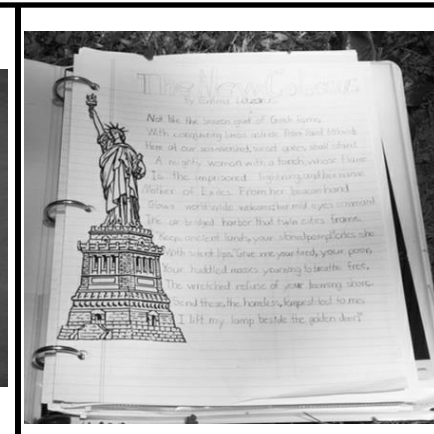 The New Colossus
By Emma Lazarus
Not like the brazen giant of Greek fame,
With conquering limbs astride from land to land;
Here at our sea-washed, sunset gates shall stand
A mighty woman with a torch, whose flame
Is the imprisoned lightning, and her name
Mother of Exiles. From her beacon-hand
Glows world-wide welcome; her mild eyes command
The air bridged harbor that twin cities frame.
"Keep, ancient lands, your storied pomp!" cries she
With silent lips. "Give me your tired, your poor,
Your huddled masses yearning to breathe free,
The wretched refuse of your teeming shore.
Send these, the homeless, tempest-tost to me,
I lift my lamp beside the golden door!"